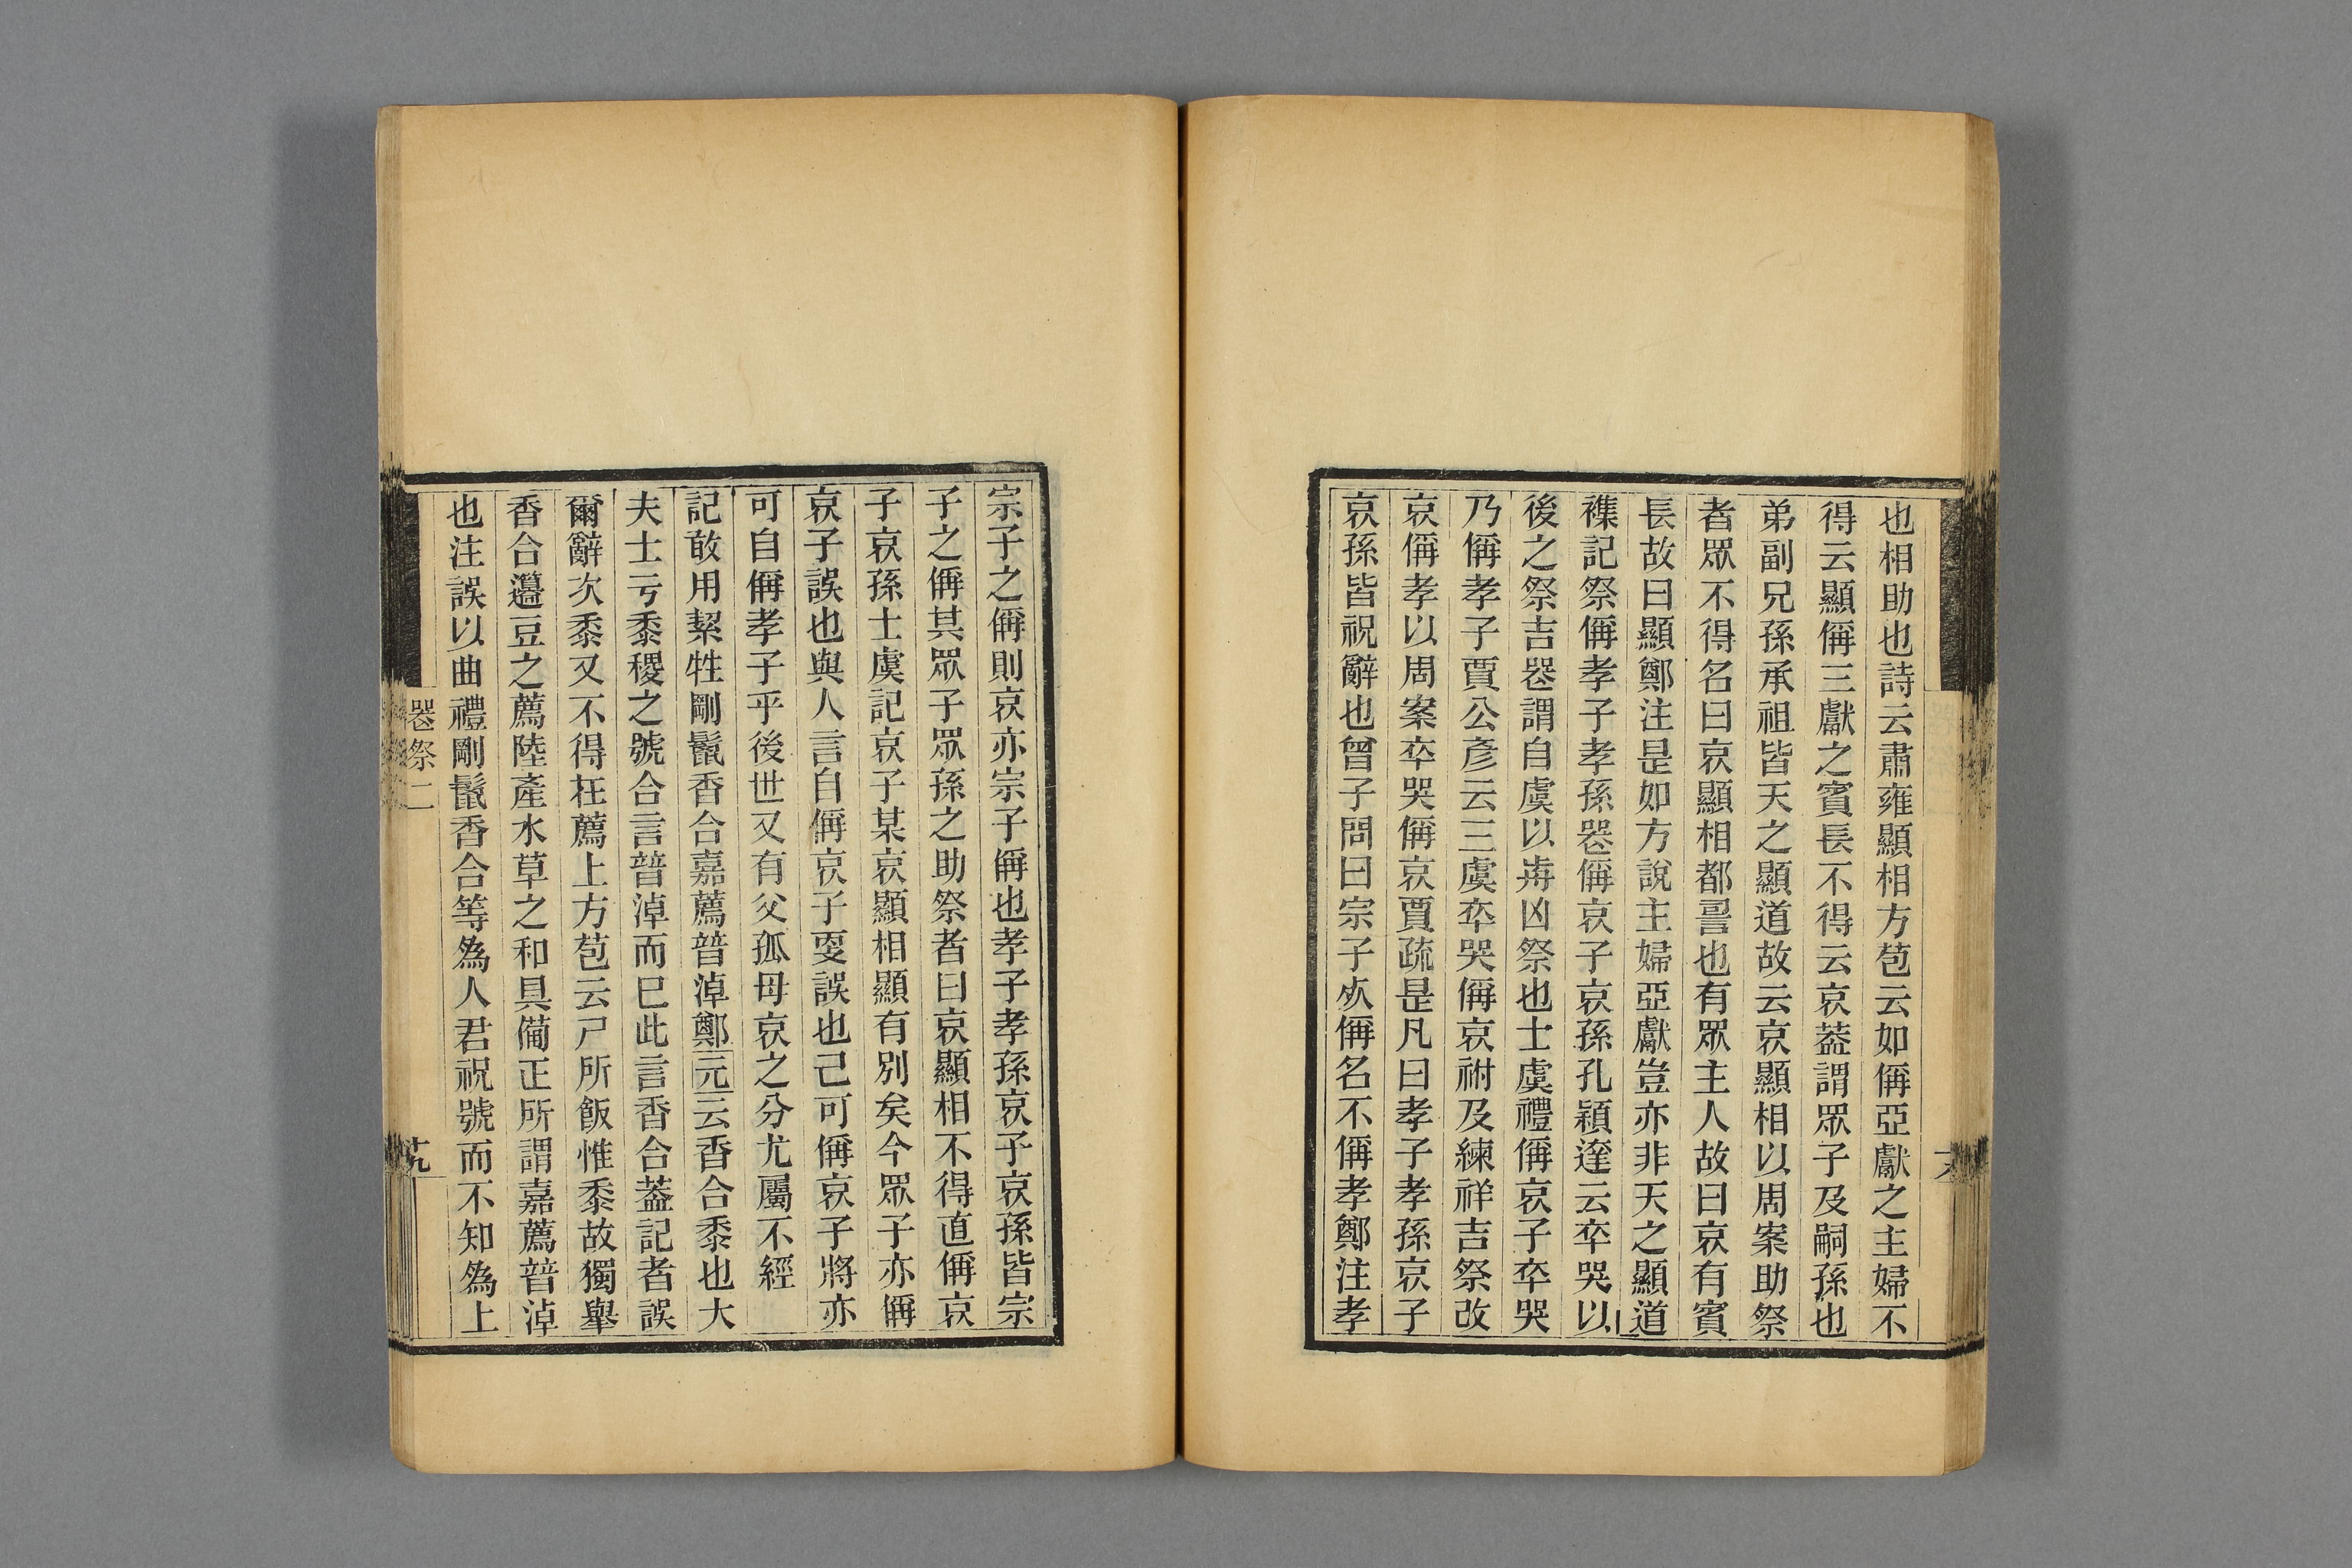 也相助也詩云肅雍顯相方苞云如偁亞獻之主婦不
得云顯偁三獻之賓長不得云哀葢謂眾子及嗣孫也
弟副兄孫承祖皆天之顯道故云哀顯相以周案助祭
者眾不得名曰哀顯相都詈也有眾主人故曰哀有賓
長故曰顯鄭注是如方說主婦亞獻豈亦非天之顯道
襍記祭偁孝子孝孫喪偁哀子哀孫孔穎達云卒哭以
後之祭吉喪謂自虞以歬凶祭也士虞禮偁哀子卒哭
乃偁孝子賈公彥云三虞卒哭偁哀祔及練祥吉祭改
哀偁孝以周案卒哭偁哀賈疏是凡曰孝子孝孫哀子
哀孫皆祝辭也曾子問曰宗子𣦸偁名不偁孝鄭注孝
宗子之偁則哀亦宗子偁也孝子孝孫哀子哀孫皆宗
子之偁其眾子眾孫之助祭者曰哀顯相不得直偁哀
子哀孫士虞記哀子某哀顯相顯有別矣今眾子亦偁
哀子誤也與人言自偁哀子耍誤也己可偁哀子將亦
可自偁孝子乎後世又有父孤母哀之分尤屬不經
記敢用絜牲剛鬣香合嘉薦普淖鄭元云香合黍也大
夫士于黍稷之號合言普淖而巳此言香合葢記者誤
爾辭次黍又不得在薦上方苞云尸所飯惟黍故獨舉
香合籩豆之薦陸產水草之和具僃正所謂嘉薦普淖
也注誤以曲禮剛鬣香合等為人君祝號而不知為上
喪祭二
十九